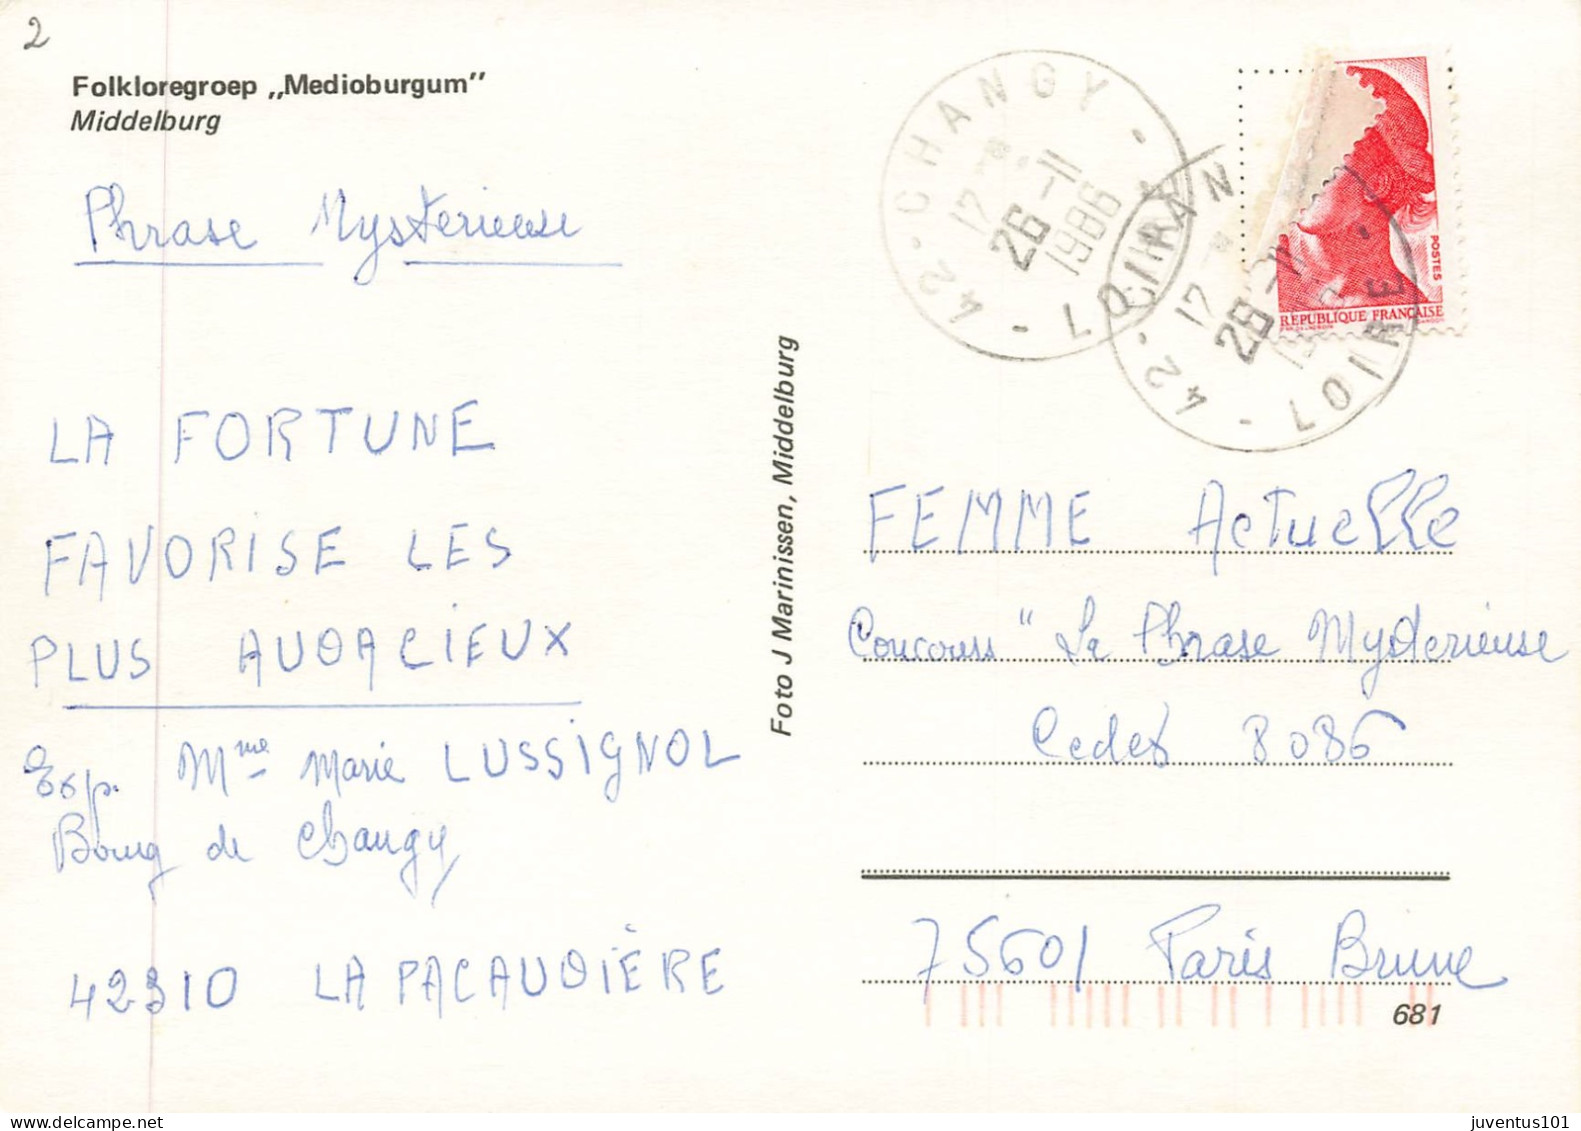 2
Folkloregroep „Medioburgum”
Middelburg
Phrase Mysterieuse
LA FORTUNE
FAVORISE LES
PLUS AUDACIEUX
Exp. Mme Marie LUSSIGNOL
Bourg de Changy
42310 LA PACAUDIÈRE
Foto J Marinissen, Middelburg
42-CHANGY
17 H
26-11
1986
-LOIRE
42-CHAN
17 H
26-11
LOIRE
POSTES
REPUBLIQUE FRANÇAISE
FEMME Actuelle
Concours " La Phrase Mysterieuse
Cedex 8086
75601 Paris Brune
681
juventus101